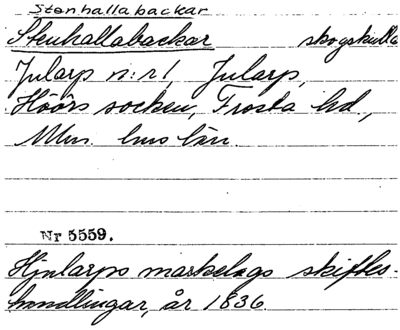 Stenhallabackar
Stenhallabackar skogskulle
Jularp n:r 1, Jularp,
Höörs socken, Frosta hd,
Mlm. hus län.
Nr 5559.
Hjularps markelags skiftes-
handlingar, år 1836